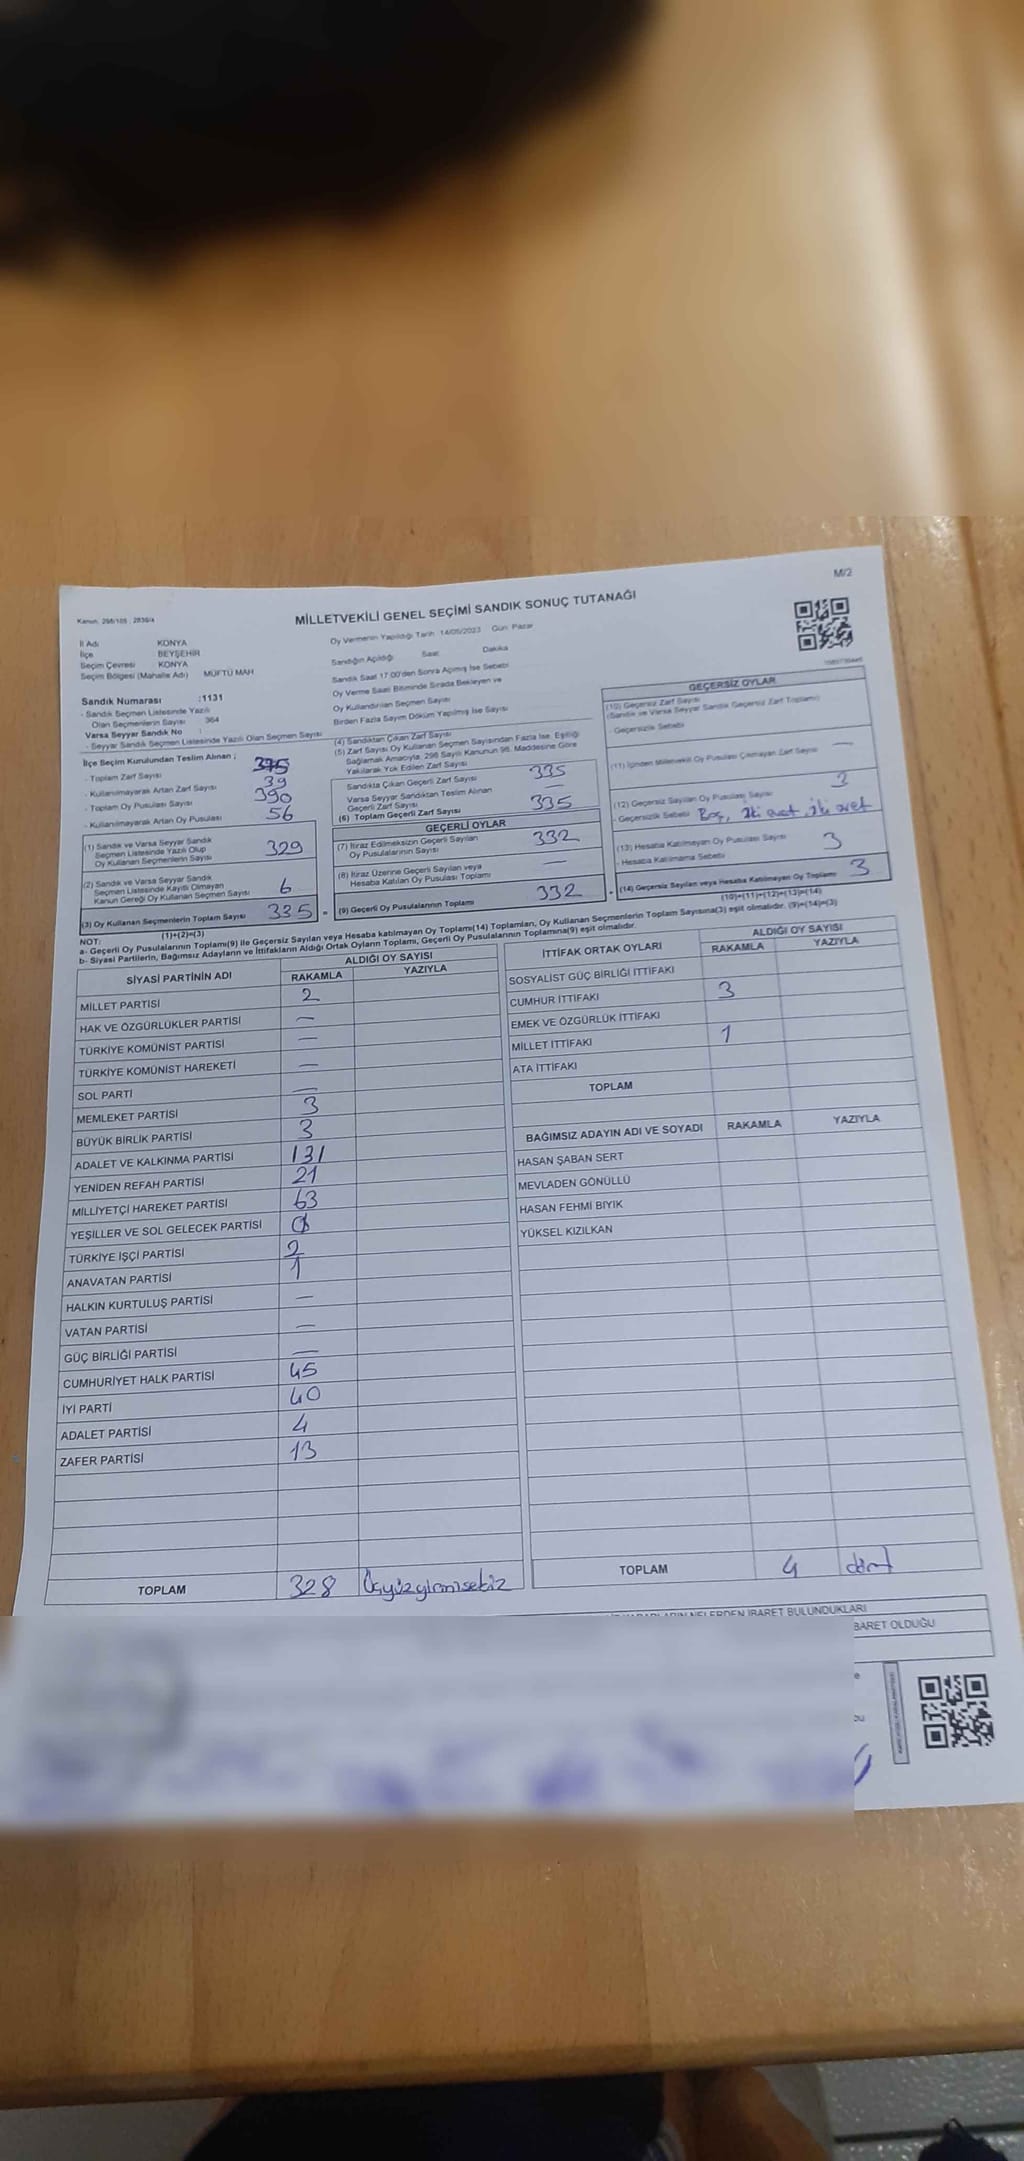 M/2
Kanun: 298/105 , 2839/4
MİLLETVEKİLİ GENEL SEÇİMİ SANDIK SONUÇ TUTANAĞI
İl Adı KONYA
İlçe BEYŞEHİR
Seçim Çevresi KONYA
Seçim Bölgesi (Mahalle Adı) MÜFTÜ MAH
Sandık Numarası :1131
- Sandık Seçmen Listesinde Yazılı
Olan Seçmenlerin Sayısı 364
Varsa Seyyar Sandık No :
- Seyyar Sandık Seçmen Listesinde Yazılı Olan Seçmen Sayısı
Oy Vermenin Yapıldığı Tarih :14/05/2023 Gün: Pazar
Sandığın Açıldığı Saat Dakika
Sandık Saat 17:00'den Sonra Açılmış İse Sebebi
Oy Verme Saati Bitiminde Sırada Bekleyen ve
Oy Kullandırılan Seçmen Sayısı
Birden Fazla Sayım Döküm Yapılmış İse Sayısı
İlçe Seçim Kurulundan Teslim Alınan ;
- Toplam Zarf Sayısı 375
- Kullanılmayarak Artan Zarf Sayısı 39
- Toplam Oy Pusulası Sayısı 390
- Kullanılmayarak Artan Oy Pusulası 56
(1) Sandık ve Varsa Seyyar Sandık
Seçmen Listesinde Yazılı Olup
Oy Kullanan Seçmenlerin Sayısı 329
(2) Sandık ve Varsa Seyyar Sandık
Seçmen Listesinde Kayıtlı Olmayan
Kanun Gereği Oy Kullanan Seçmen Sayısı 6
(3) Oy Kullanan Seçmenlerin Toplam Sayısı 335 =
(1)+(2)=(3)
(4) Sandıktan Çıkan Zarf Sayısı
(5) Zarf Sayısı Oy Kullanan Seçmen Sayısından Fazla İse, Eşitliği
Sağlamak Amacıyla, 298 Sayılı Kanunun 98. Maddesine Göre
Yakılarak Yok Edilen Zarf Sayısı
Sandıkta Çıkan Geçerli Zarf Sayısı 335
Varsa Seyyar Sandıktan Teslim Alınan
Geçerli Zarf Sayısı —
(6) Toplam Geçerli Zarf Sayısı 335
GEÇERLİ OYLAR
(7) İtiraz Edilmeksizin Geçerli Sayılan
Oy Pusulalarının Sayısı 332
(8) İtiraz Üzerine Geçerli Sayılan veya
Hesaba Katılan Oy Pusulası Toplamı
(9) Geçerli Oy Pusulalarının Toplamı 332 +
GEÇERSİZ OYLAR
(10) Geçersiz Zarf Sayısı
(Sandık ve Varsa Seyyar Sandık Geçersiz Zarf Toplamı)
- Geçersizlik Sebebi
(11) İçinden Milletvekili Oy Pusulası Çıkmayan Zarf Sayısı —
(12) Geçersiz Sayılan Oy Pusulası Sayısı 3
- Geçersizlik Sebebi Boş, iki evet, iki evet
(13) Hesaba Katılmayan Oy Pusulası Sayısı 3
- Hesaba Katılmama Sebebi
(14) Geçersiz Sayılan veya Hesaba Katılmayan Oy Toplamı 3
(10)+(11)+(12)+(13)=(14)
NOT:
a- Geçerli Oy Pusulalarının Toplamı(9) ile Geçersiz Sayılan veya Hesaba Katılmayan Oy Toplamı(14) Toplamları, Oy Kullanan Seçmenlerin Toplam Sayısına(3) eşit olmalıdır. (9)+(14)=(3)
b- Siyasi Partilerin, Bağımsız Adayların ve İttifakların Aldığı Ortak Oyların Toplamı, Geçerli Oy Pusulalarının Toplamına(9) eşit olmalıdır.
SİYASİ PARTİNİN ADI ALDIĞI OY SAYISI
RAKAMLA YAZIYLA
MİLLET PARTİSİ 2
HAK VE ÖZGÜRLÜKLER PARTİSİ —
TÜRKİYE KOMÜNİST PARTİSİ —
TÜRKİYE KOMÜNİST HAREKETİ —
SOL PARTİ —
MEMLEKET PARTİSİ 3
BÜYÜK BİRLİK PARTİSİ 3
ADALET VE KALKINMA PARTİSİ 131
YENİDEN REFAH PARTİSİ 21
MİLLİYETÇİ HAREKET PARTİSİ 63
YEŞİLLER VE SOL GELECEK PARTİSİ
TÜRKİYE İŞÇİ PARTİSİ 2
ANAVATAN PARTİSİ 1
HALKIN KURTULUŞ PARTİSİ —
VATAN PARTİSİ —
GÜÇ BİRLİĞİ PARTİSİ —
CUMHURİYET HALK PARTİSİ 45
İYİ PARTİ 40
ADALET PARTİSİ 4
ZAFER PARTİSİ 13
TOPLAM 328 Üçyüzyirmisekiz
İTTİFAK ORTAK OYLARI ALDIĞI OY SAYISI
RAKAMLA YAZIYLA
SOSYALİST GÜÇ BİRLİĞİ İTTİFAKI
CUMHUR İTTİFAKI 3
EMEK VE ÖZGÜRLÜK İTTİFAKI
MİLLET İTTİFAKI 1
ATA İTTİFAKI
TOPLAM
BAĞIMSIZ ADAYIN ADI VE SOYADI RAKAMLA YAZIYLA
HASAN ŞABAN SERT
MEVLADEN GÖNÜLLÜ
HASAN FEHMİ BIYIK
YÜKSEL KIZILKAN
TOPLAM 4 dört
NELERDEN İBARET BULUNDUKLARI
BARET OLDUĞU